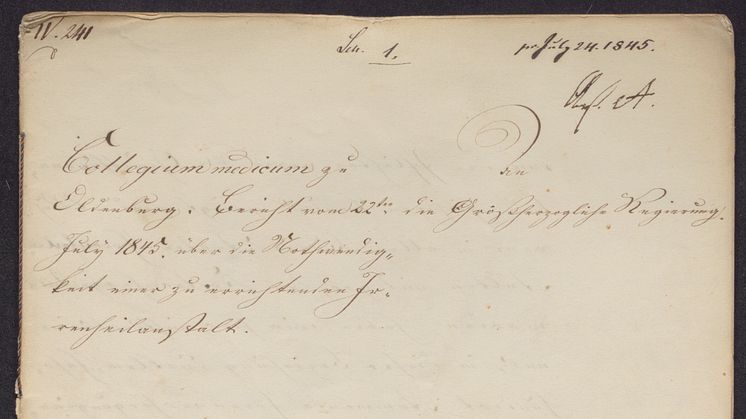 IV. 241
1.
pr July 24. 1845.
Anl. A.
Collegium medicum zu
Oldenburg. Bericht vom 22ten
July 1845. über die Nothwendig„
keit einer zu errichtenden Ir„
renheilanstalt.
An
die Großherzogliche Regierung.